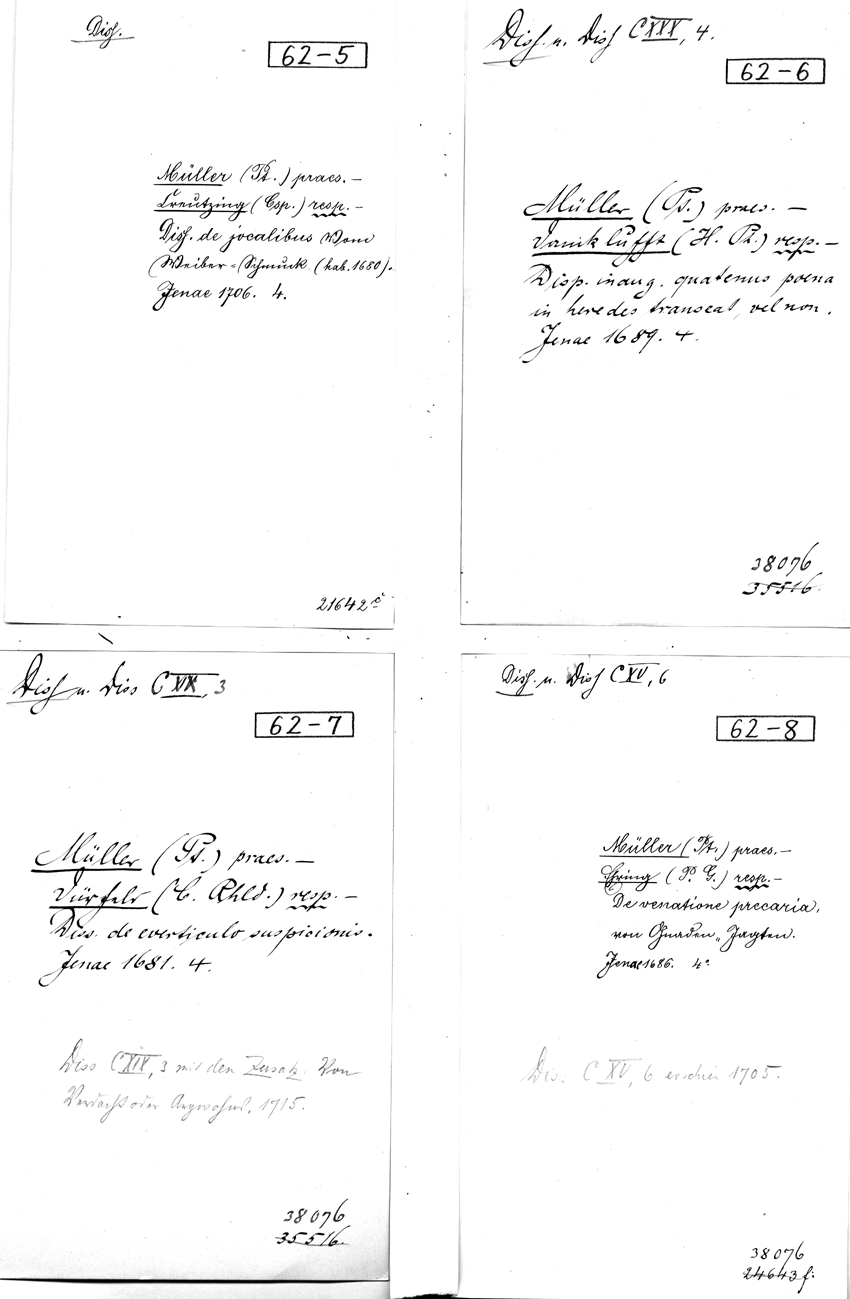 Diss.
62-5
Müller (Pt.) praes. —
Creutzing (Csp.) resp. —
Diss. de jocalibus Vom
Weiber-Schmuck (hab. 1680).
Jenae 1706. 4.
21642 c
Diss. u. Diss CXXX, 4.
62-6
Müller (Pt.) praes. —
(H. Pt.) resp. —
Disp. inaug. quatenus poena
in heredes transeat, vel non.
Jenae 1689. 4.
38076
35516.
Diss u. Diss CXIX, 3
62-7
Müller (Pt.) praes. —
Dürfeld (C. Rhld.) resp. —
Diss. de everticulo suspicionis.
Jenae 1681. 4.
Diss CXIX, 3 mit den Zusatz. Von
Verdacht oder Argwohns, 1715.
38076
35516.
Diss. u. Diss CXV, 6
62-8
Müller (Pt.) praes. —
(P. G.) resp. —
De venatione precaria,
von Gnaden-Jagten.
Jenae 1686. 4°
Diss CXV, 6 erschien 1705.
38076
24643 f.